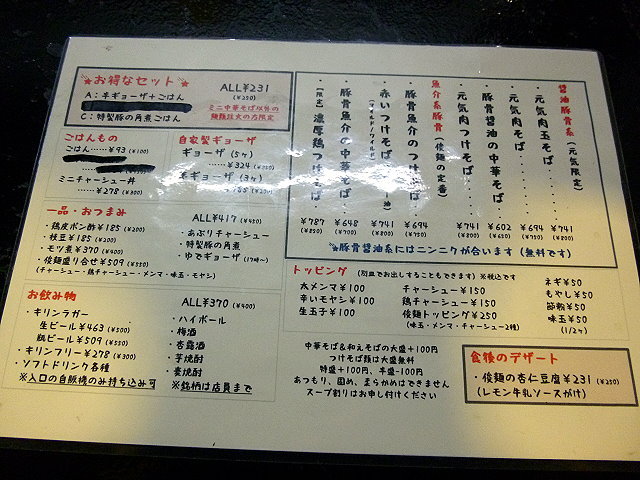 お得なセット
ALL¥231
(¥250)
A：半ギョーザ＋ごはん
C：特製豚の角煮ごはん
ミニ中華そば以外の
麺類注文の方限定
ごはんもの
ごはん……¥93(¥100)
ミニチャーシュー丼
……¥278(¥300)
自家製ギョーザ
ギョーザ(5ヶ)
……¥324(¥350)
半ギョーザ(3ヶ)
¥185(¥200)
一品・おつまみ
・鶏皮ポン酢¥185(¥200)
・枝豆¥185(¥200)
・モツ煮¥370(¥400)
・俊麺盛り合せ¥509(¥550)
(チャーシュー・鶏チャーシュー・メンマ・味玉・モヤシ)
ALL¥417(¥450)
・あぶりチャーシュー
・特製豚の角煮
・ゆでギョーザ(17時〜)
お飲み物
・キリンラガー
生ビール¥463(¥500)
瓶ビール¥509(¥550)
・キリンフリー¥278(¥300)
・ソフトドリンク各種
※入口の自販機のみ持ち込み可
ALL¥370(¥400)
・ハイボール
・梅酒
・杏露酒
・芋焼酎
・麦焼酎
※銘柄は店員まで
醤油豚骨系(元気限定)
・元気肉玉そば……¥741(¥800)
・元気肉そば……¥694(¥750)
・豚骨醤油の中華そば……¥602(¥650)
・元気肉つけそば……¥741(¥800)
魚介系豚骨(俊麺の定番)
・豚骨魚介のつけそば……¥694(¥750)
・赤いつけそば……¥741(¥800)
(マイルド/ワイルド)
・豚骨魚介の中華そば……¥648(¥700)
・(限定)濃厚鶏つけそば……¥787(¥850)
☆豚骨醤油系にはニンニクが合います(無料です)
トッピング(別皿でお出しすることもできます)※税込です
太メンマ¥100
辛いモヤシ¥100
生玉子¥100
チャーシュー¥150
鶏チャーシュー¥150
俊麺トッピング¥250
(味玉・メンマ・チャーシュー2種)
ネギ¥50
もやし¥50
節粉¥50
味玉¥50
(1/2ヶ)
中華そば＆和えそばの大盛＋100円
つけそば類は大盛無料
特盛＋100円、半盛-100円
あつもり、固め、柔らかめはできません
スープ割りはお申し付けください
食後のデザート
・俊麺の杏仁豆腐¥231(¥250)
(レモン牛乳ソースがけ)